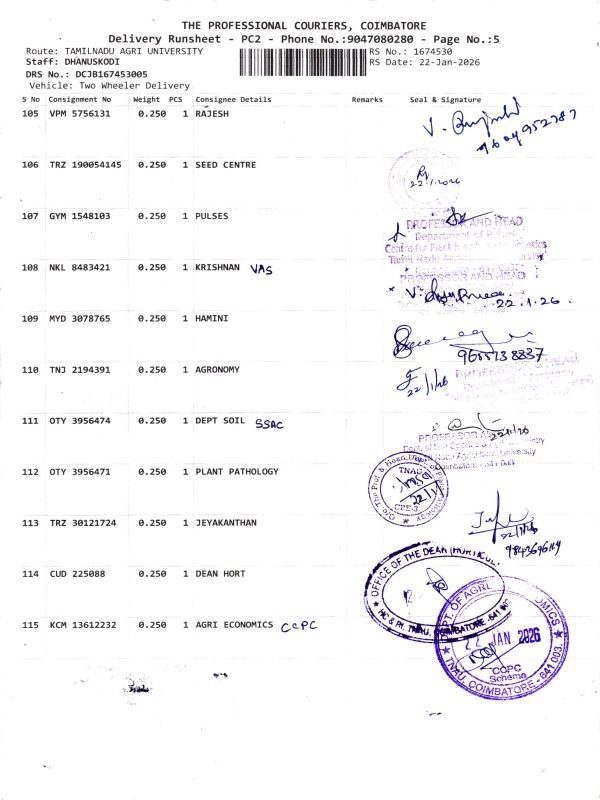 THE PROFESSIONAL COURIERS, COIMBATORE
Delivery Runsheet - PC2 - Phone No.:9047080280 - Page No.:5
Route: TAMILNADU AGRI UNIVERSITY RS No.: 1674530
Staff: DHANUSKODI RS Date: 22-Jan-2026
DRS No.: DCJB167453005
Vehicle: Two Wheeler Delivery
S No Consignment No Weight PCS Consignee Details Remarks Seal & Signature
105 VPM 5756131 0.250 1 RAJESH
106 TRZ 190054145 0.250 1 SEED CENTRE
22.1.2026
107 GYM 1548103 0.250 1 PULSES
PROFESSOR AND HEAD
Department of Pulses
Centre for Plant
Tamil Nadu
108 NKL 8483421 0.250 1 KRISHNAN VAS
PROFESSOR AND HEAD
22.1.26.
109 MYD 3078765 0.250 1 HAMINI
9655738837
110 TNJ 2194391 0.250 1 AGRONOMY
22/1/26
PROFESSOR & HEAD
111 OTY 3956474 0.250 1 DEPT SOIL SSAC
22/1/26
PROFESSOR
Tamil Nadu Agricultural University
Coimbatore - 641 003
112 OTY 3956471 0.250 1 PLANT PATHOLOGY
O/o. The Prof & Head, Dept. of Plant Pathology
TNAU
22/1
CBE-3
113 TRZ 30121724 0.250 1 JEYAKANTHAN
22/1/26
114 CUD 225088 0.250 1 DEAN HORT
OFFICE OF THE DEAN (HORTICUL
HC & RI, TNAU, COIMBATORE-641 003
115 KCM 13612232 0.250 1 AGRI ECONOMICS CCPC
DEPT. OF AGRL. ECONOMICS
22 JAN 2026
CCPC
Scheme
TNAU, COIMBATORE - 641 003.